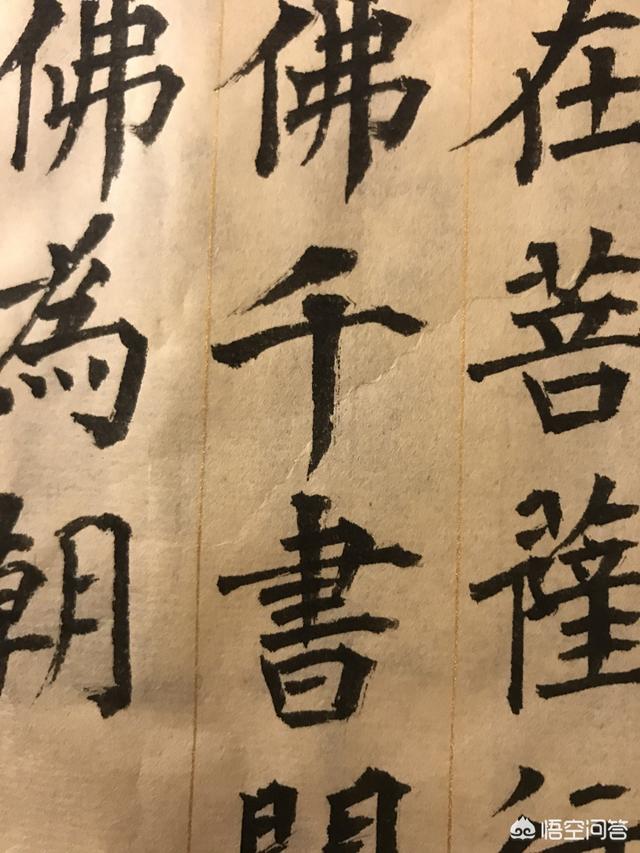 在菩薩行
佛千書
佛為朝
悟空问答